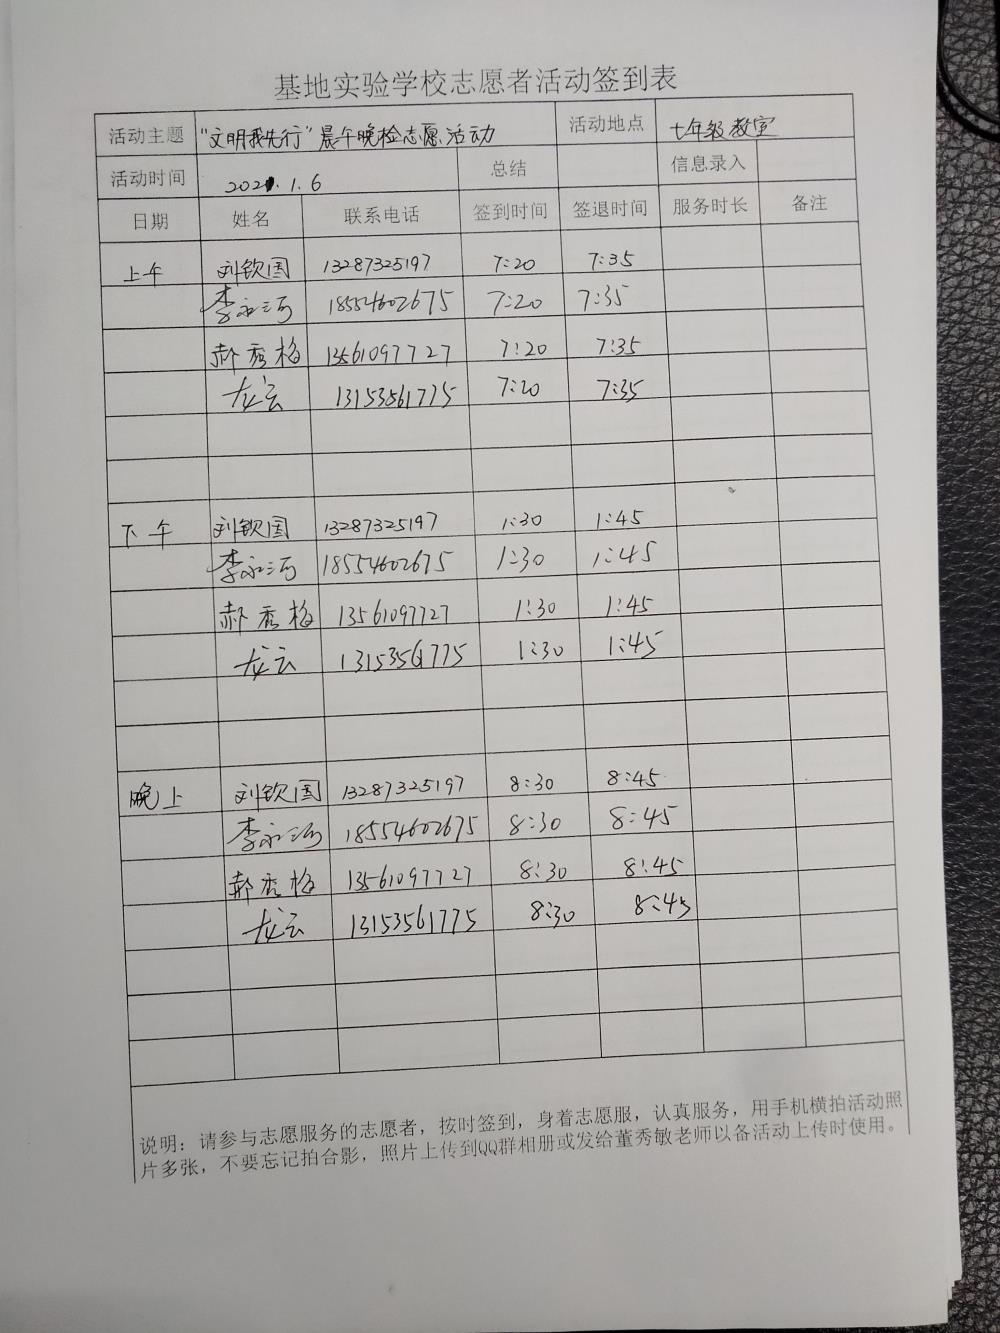 基地实验学校志愿者活动签到表
活动主题 "文明我先行"晨午晚检志愿活动 活动地点 七年级教室
活动时间 2021.1.6 总结 信息录入
日期 姓名 联系电话 签到时间 签退时间 服务时长 备注
上午 刘钦国 13287325197 7:20 7:35
李永河 18554602675 7:20 7:35
郝秀梅 13561097727 7:20 7:35
龙云 13153561775 7:20 7:35
下午 刘钦国 13287325197 1:30 1:45
李永河 18554602675 1:30 1:45
郝秀梅 13561097727 1:30 1:45
龙云 13153561775 1:30 1:45
晚上 刘钦国 13287325197 8:30 8:45
李永河 18554602675 8:30 8:45
郝秀梅 13561097727 8:30 8:45
龙云 13153561775 8:30 8:45
说明：请参与志愿服务的志愿者，按时签到，身着志愿服，认真服务，用手机横拍活动照
片多张，不要忘记拍合影，照片上传到QQ群相册或发给董秀敏老师以备活动上传时使用。